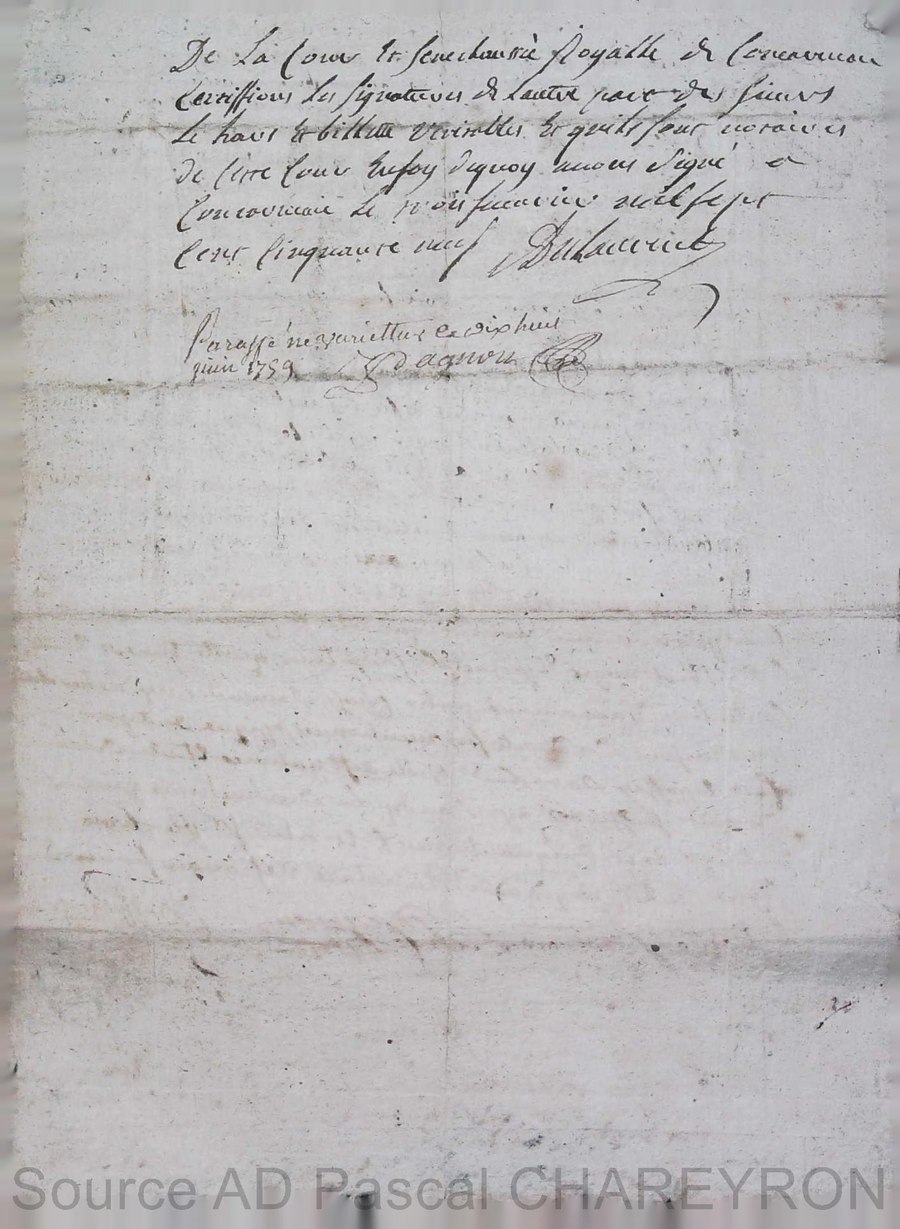 De La Cour et senechaussée Royalle de Concarneau
Certiffions les signatures de Lautre part des sieurs
Le hars et billette veritables et quils sont notaires
de cette Cour En foy dequoy avons signé a
Concarneau le trois janvier mil sept
Cent Cinquante neuf Dulaurent
Paraffé ne variettur ce dix huit
juin 1759 Dagnon
Source AD Pascal CHAREYRON